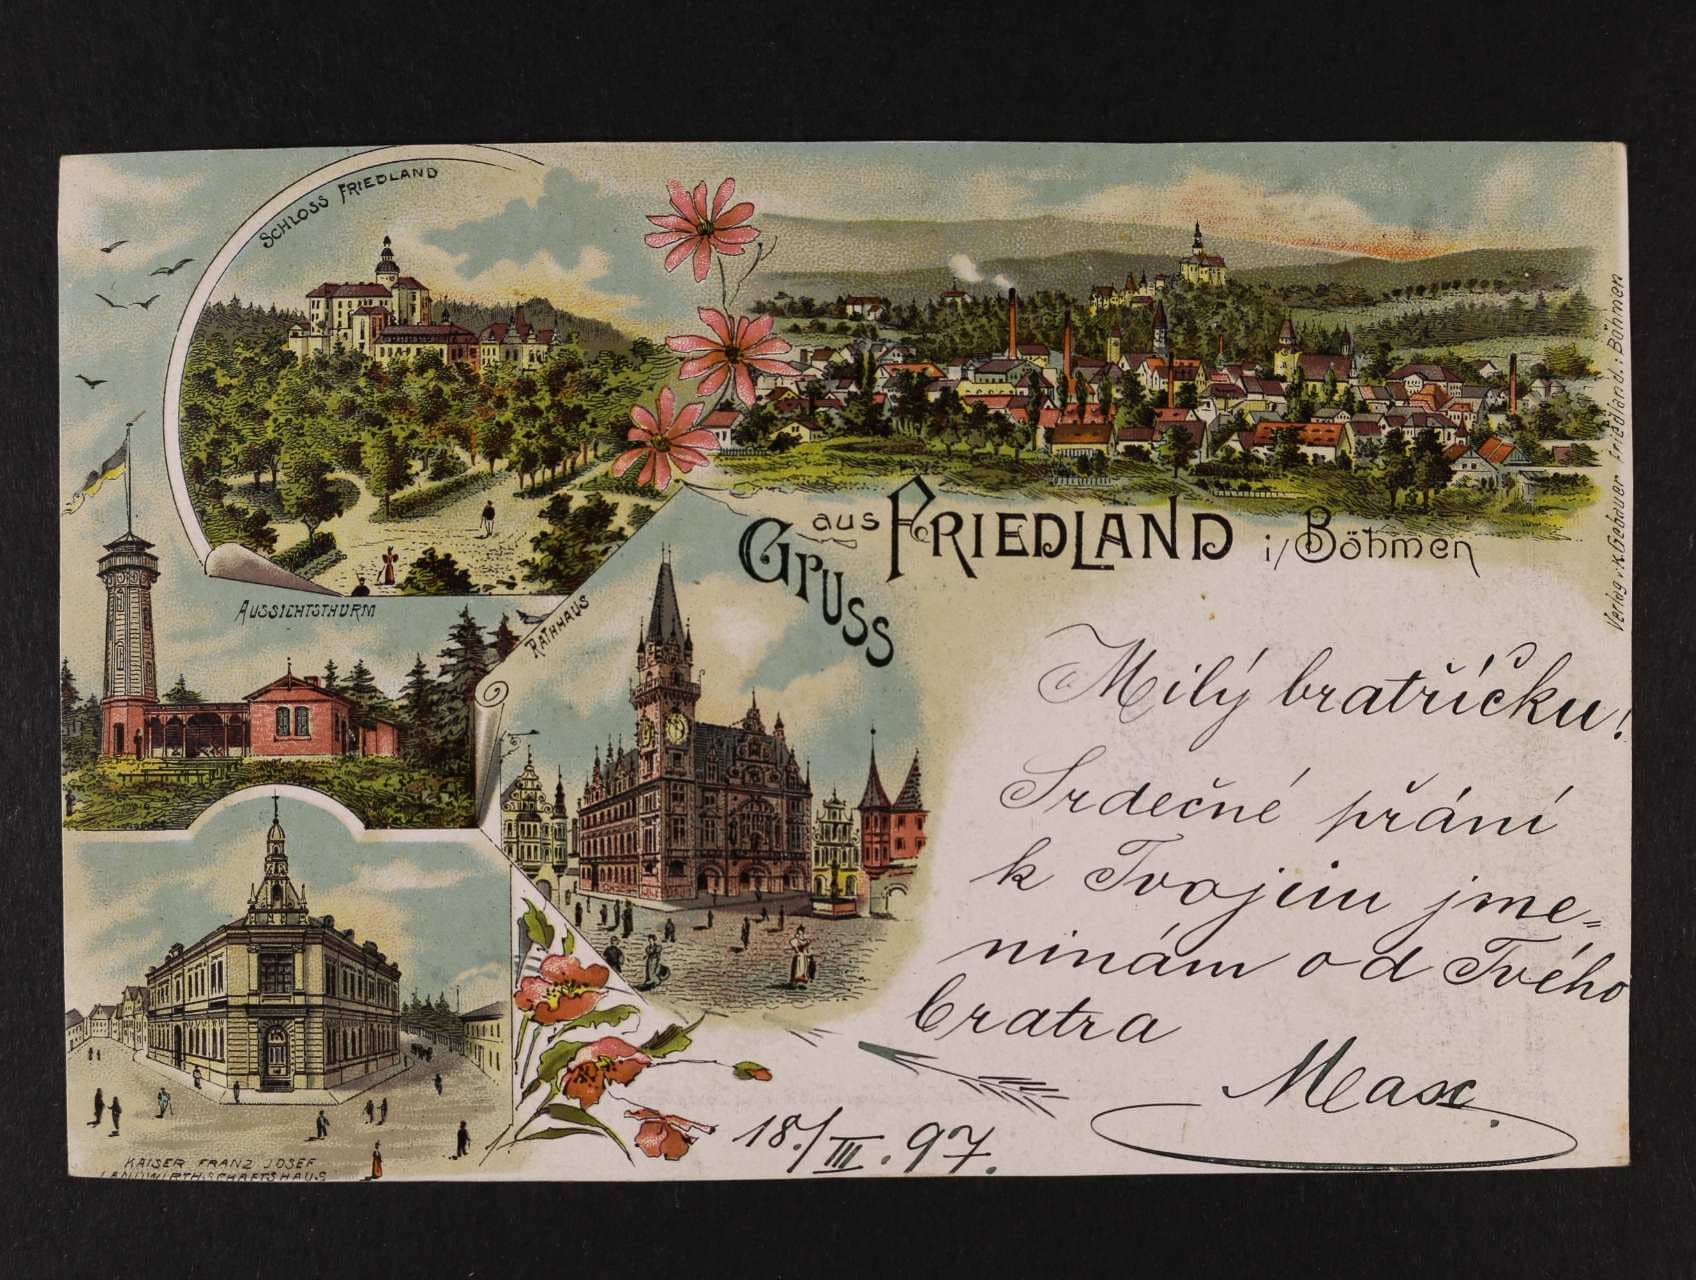 SCHLOSS FRIEDLAND
Gruss aus FRIEDLAND i/Böhmen
AUSSICHTSTHURM
RATHHAUS
KAISER FRANZ JOSEF
LANDWIRTHSCHAFTSHAUS
Verlag v. K. Gebauer Friedland i. Böhmen
Milý bratříčku!
Srdečné přání
k Tvojim jme=
ninám od Tvého
bratra
Max.
18./III. 97.